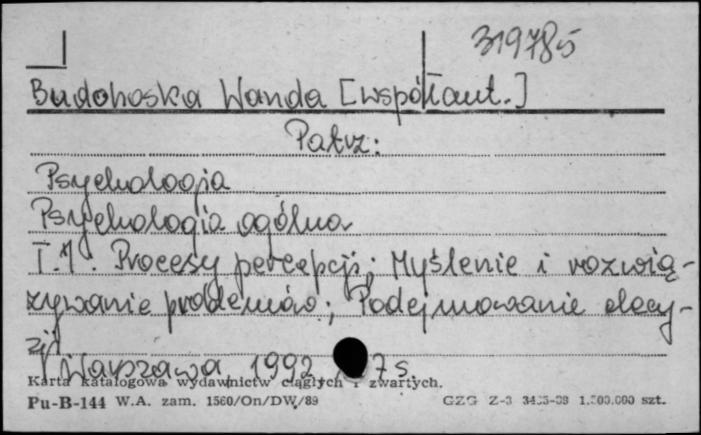 319785
Budohoska Wanda [współaut.]
Patrz:
Psychologia
Psychologia ogólna
T.1. Procesy percepcji; Myślenie i rozwią-
zywanie problemów; Podejmowanie decy-
zji Warszawa, 1992 7 s.
Karta katalogowa wydawnictw ciągłych i zwartych.
Pu-B-144 W.A. zam. 1560/On/DW/89 GZG Z-3 1.500.000 szt.